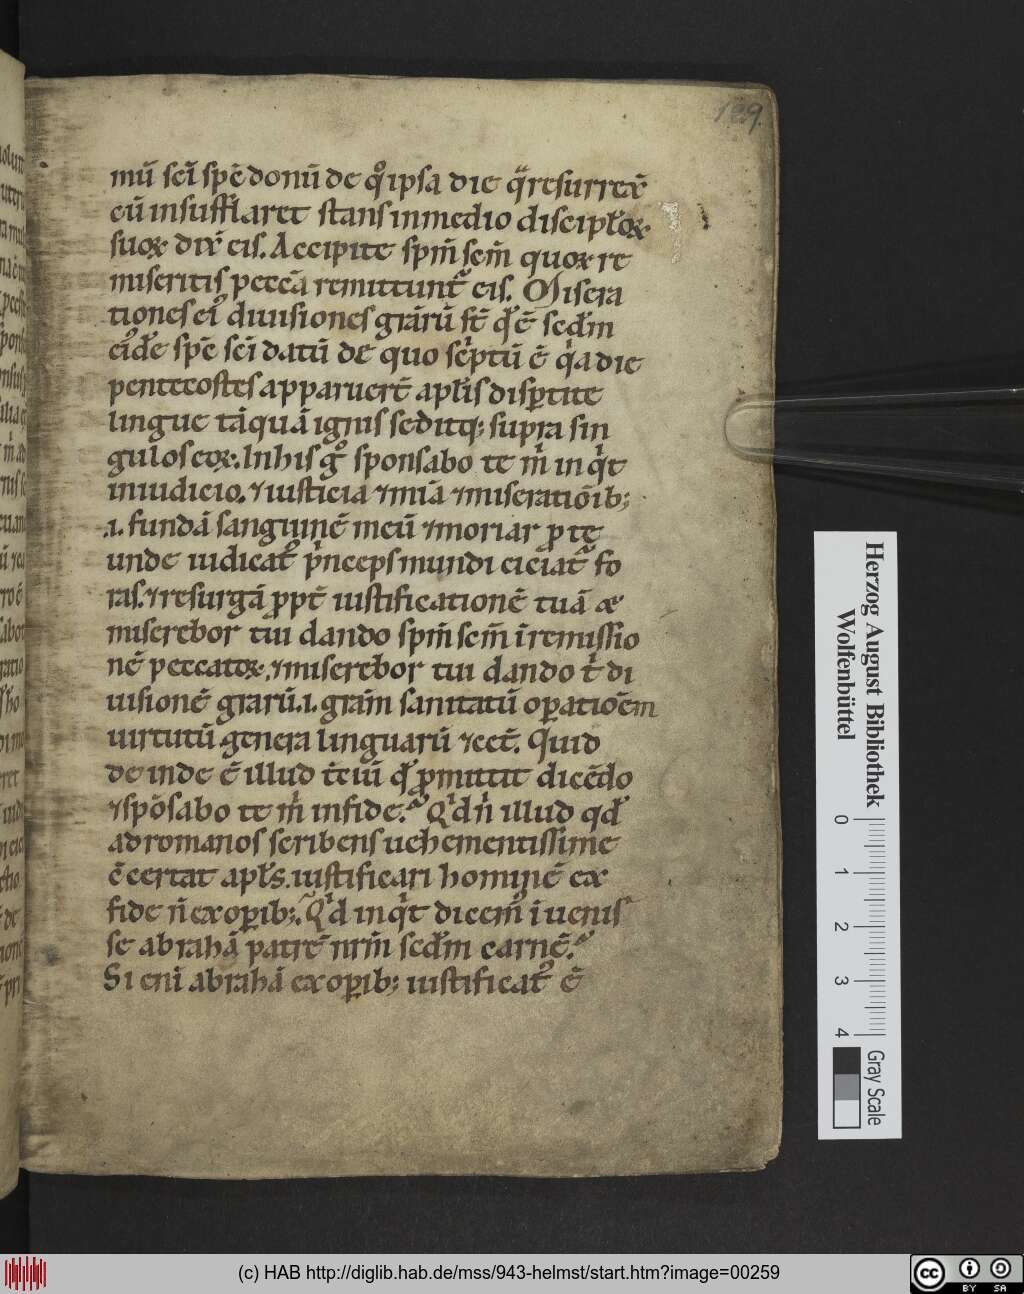 129.
mū sc̄i sp̄c̄ donū de q̊ ipsa die q̄ resurrex̄
cū insufflaret stans in medio discipl̄oꝝ
suoꝝ dix̄ eis. Accipite sp̄m sc̄m quoꝝ re
miseritis peccā remittunt᷑ eis. Misera
tiones ei᷒ diuisiones grāꝝū st̄ q̄ ē sc̄dm
ei᷒dē sp̄c̄ sc̄i datū de quo sc̄ptū ē q̇a die
pentecostes apparuer̄t apl̄is disꝑtite
lingue tāquā ignis seditq; supra sin
gulos eoꝝ. In his g̊ sponsabo te ṁ inq̇t
in iudicio. ⁊ iusticia ⁊ mīa ⁊ miseratiōib;
.i. fundā sanguinē meū ⁊ moriar ꝓ te
unde iudicat᷑ ṗnceps mundi eiciat᷑ fo
ras. ⁊ resurgā ꝓpt̄ iustificationē tuā ac
miserebor tui dando sp̄m sc̄m ī remissio
nē peccatoꝝ. ⁊ miserebor tui dando ṫ di
uisionē grārū .i. grām sanitatū oꝑatiōem
uirtutū genera linguarū ⁊cet̄. Quid
de inde ē illud t̄ciū q̄ ꝓmittit dicēdo
⁊ spōsabo te ṁ in fide. Q̇d n̄ illud qd̄
ad romanos scribens uehementissime
c̄certat apl̄s. iustificari hominē ex
fide n̄ ex oꝑib;. Q̇d inq̇t dicem᷒ īuenis
se abrahā patrē nr̄m sc̄dm carnē.
Si eni abrahā ex oꝑib; iustificat᷒ ē
Herzog August Bibliothek
Wolfenbüttel
0 1 2 3 4
Gray Scale
(c) HAB http://diglib.hab.de/mss/943-helmst/start.htm?image=00259
cc BY SA